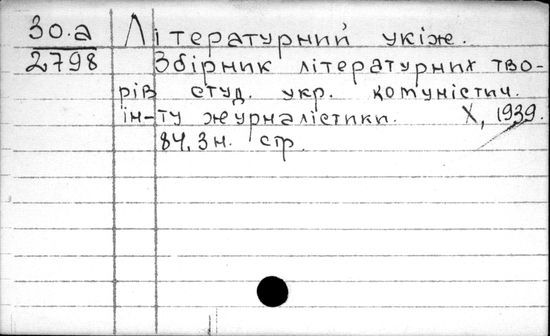 30.а Літературний укіж.
2798 Збірник літературних тво-
рів студ. укр. комуністич.
ін-ту журналістики. Х, 1939.
84, 3н. стр.